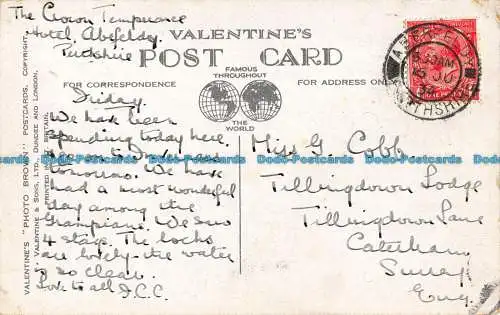 The Crown Temperance
Hotel, Abefeldy.
Perthshire
VALENTINE'S
POST CARD
FAMOUS
THROUGHOUT
THE
WORLD
FOR CORRESPONDENCE
FOR ADDRESS ONLY
VALENTINE'S "PHOTO BROWN" POSTCARDS, COPYRIGHT,
VALENTINE & SONS, LTD., DUNDEE AND LONDON.
PRINTED IN
Friday.
We have been
spending today here.
tomorrow. We have
had a most wonderful
day among the
Grampians. We saw
4 stags. The lochs
are lovely - the water
is so clear.
Love to all J.C.C.
Miss G. Cobb,
Tillingdown Lodge
Tillingdown Lane
Caterham
Surrey
Eng.
Dodo-Postcards Dodo-Postcards Dodo-Postcards